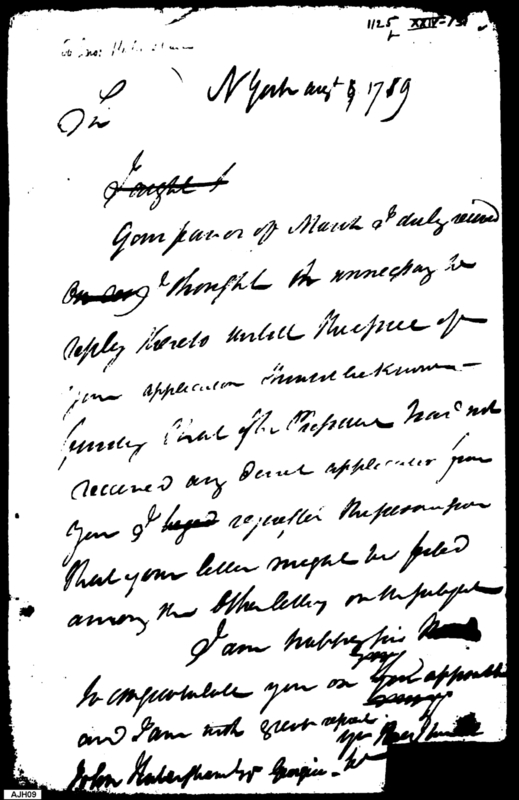 1125 XXIV-131
To Jno: Habersham
N York augt 9 1789
Sir
I ought I
Your favor of March I duly received
I thought it unnecessary to
reply thereto untill the issue of
your application should be known—
finding that the President had not
received any direct application from
you I begged requested the permission
that your letter might be filed
among the other letters on the subject
I am happy sir
to congratulate you on your appointment
and I am with great respect
John Habersham Esqr Georgia
AJH09